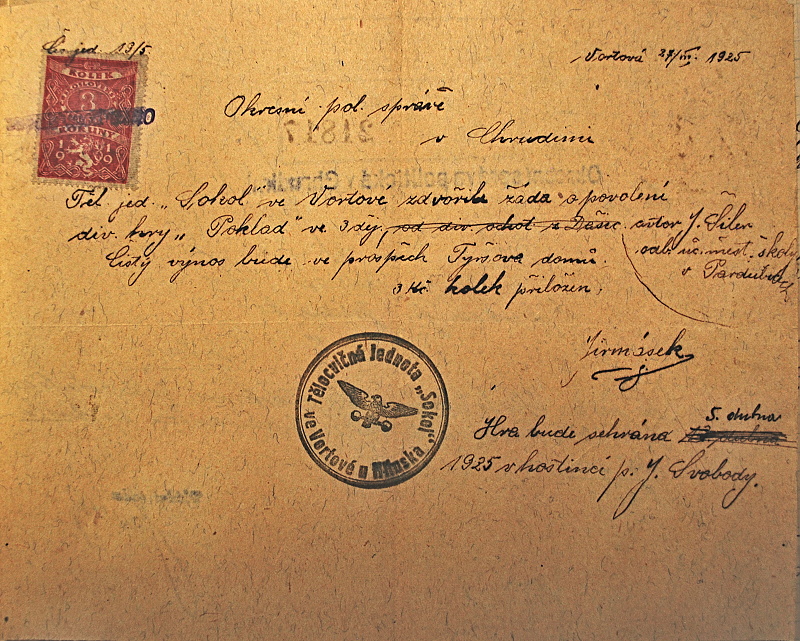 Čís. jed. 13/5.
Vortová 27/III. 1925
KOLEK
3
KORUNY
1919
Okresní pol. správě
v Chrudimi
21817
Těl. jed. „Sokol" ve Vortové zdvořile žádá o povolení
div. hry „Poklad" ve 3 děj, od div. ochot. z Dašic autor J. Šiler
odb. uč. měst. školy
Čistý výnos bude ve prospěch Tyršova domu.
v Pardubicích
3 Kč kolek přiložen.
Jirmásek
Tělocvičná Jednota „Sokol"
ve Vortové u Hlinska
5. dubna
Hra bude sehrána
1925 v hostinci p. J. Svobody.